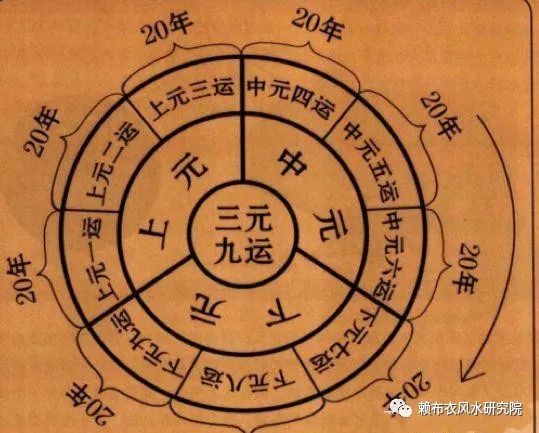 三元
九运
上元
中元
下元
上元一运
上元二运
上元三运
中元四运
中元五运
中元六运
下元七运
下元八运
下元九运
20年
20年
20年
20年
20年
20年
20年
20年
赖布衣风水研究院